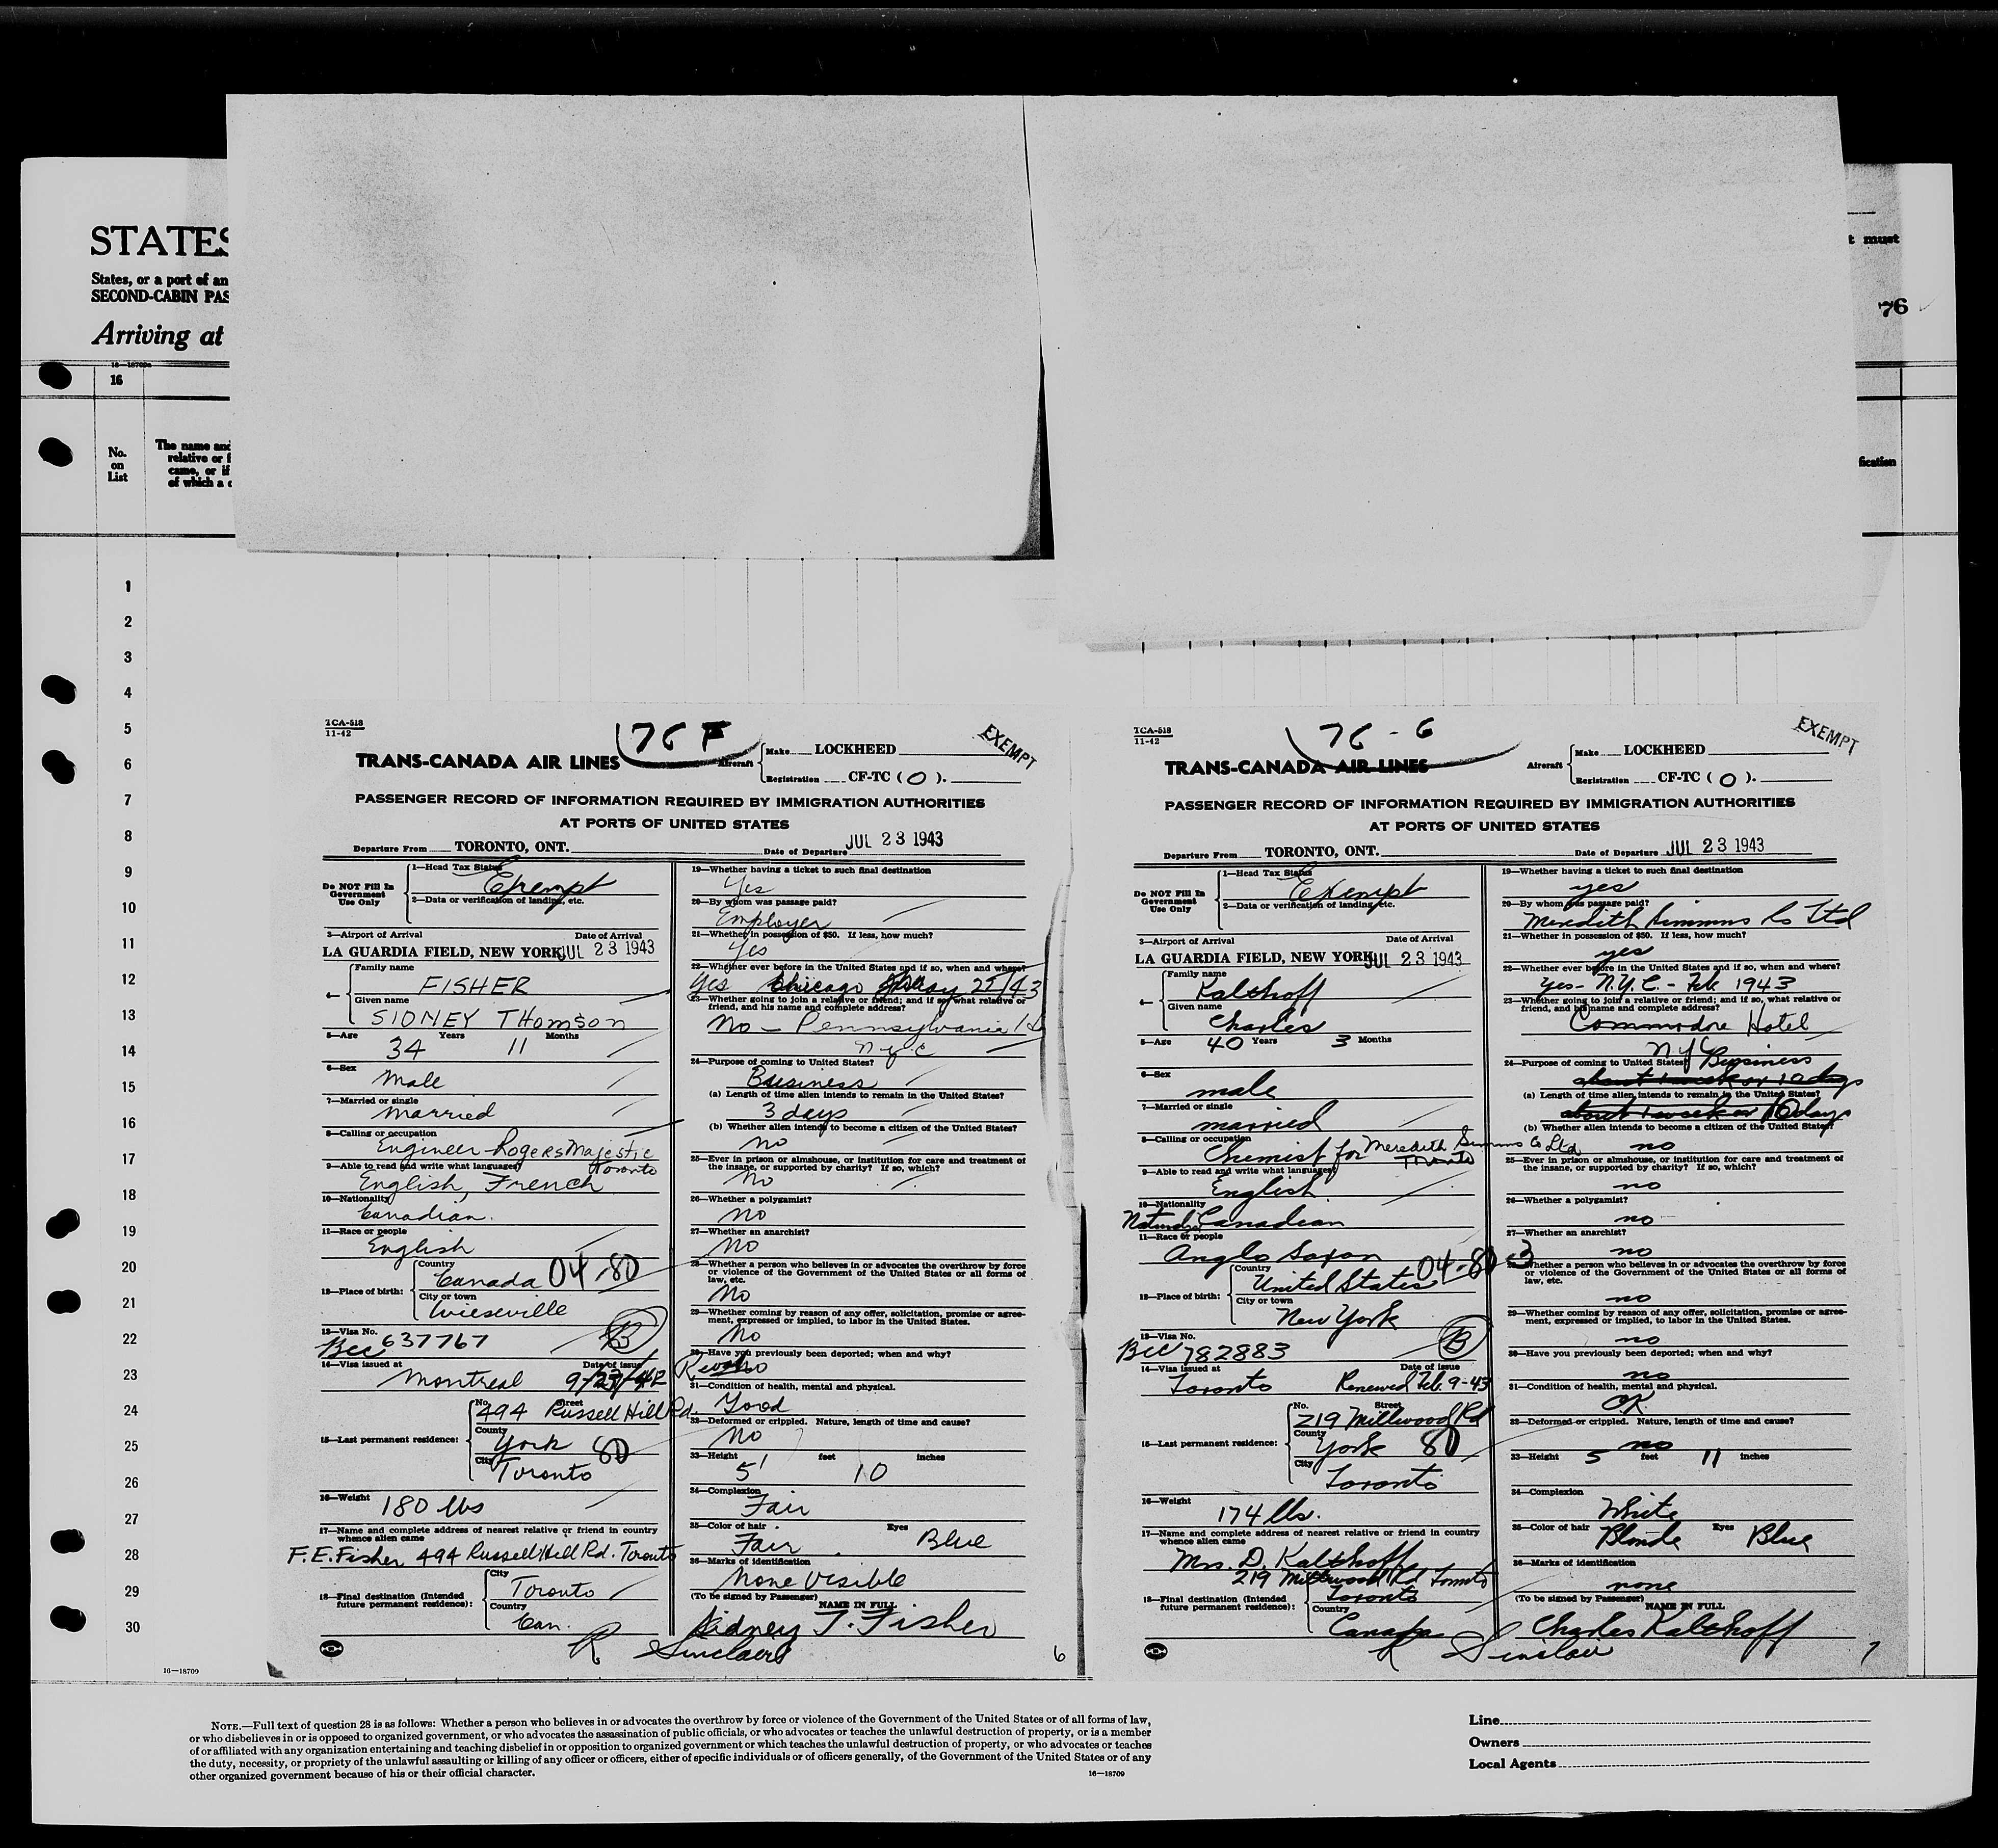 STATES
States, or a port of an
SECOND-CABIN PAS
Arriving at
16—18709
16
No.
on
List
The name and
relative or f
came, or if
of which a c
t must
76
fication
1
2
3
4
5
6
7
8
9
10
11
12
13
14
15
16
17
18
19
20
21
22
23
24
25
26
27
28
29
30
16—18709
TCA-518
11-42
76 F
EXEMPT
TRANS-CANADA AIR LINES
Aircraft
Make LOCKHEED
Registration CF-TC ( O ).
PASSENGER RECORD OF INFORMATION REQUIRED BY IMMIGRATION AUTHORITIES
AT PORTS OF UNITED STATES
Departure From TORONTO, ONT. Date of Departure JUL 23 1943
Do NOT Fill In
Government
Use Only
1—Head Tax Status
Exempt
2—Data or verification of landing, etc.
3—Airport of Arrival Date of Arrival
LA GUARDIA FIELD, NEW YORK JUL 23 1943
4— Family name
FISHER
Given name
SIDNEY THOMSON
5—Age 34 Years 11 Months
6—Sex
Male
7—Married or single
Married
8—Calling or occupation
Engineer - Rogers Majestic
Toronto
9—Able to read and write what languages?
English, French
10—Nationality
Canadian.
11—Race or people
English
12—Place of birth:
Country
Canada 04-80
City or town
Wieseville
13—Visa No.
BCC 637767 B
14—Visa issued at Date of issue
Montreal 9/23/42
15—Last permanent residence:
No. Street
494 Russell Hill Rd.
County
York 80
City
Toronto
16—Weight 180 lbs
17—Name and complete address of nearest relative or friend in country
whence alien came
F.E. Fisher 494 Russell Hill Rd. Toronto
18—Final destination (Intended
future permanent residence):
City
Toronto
Country
Can.
19—Whether having a ticket to such final destination
Yes
20—By whom was passage paid?
Employer
21—Whether in possession of $50. If less, how much?
Yes
22—Whether ever before in the United States and if so, when and where?
Yes Chicago May 22/43
23—Whether going to join a relative or friend; and if so, what relative or
friend, and his name and complete address?
No - Pennsylvania
N.Y.C
24—Purpose of coming to United States?
Business
(a) Length of time alien intends to remain in the United States?
3 days
(b) Whether alien intends to become a citizen of the United States?
no
25—Ever in prison or almshouse, or institution for care and treatment of
the insane, or supported by charity? If so, which?
No
26—Whether a polygamist?
No
27—Whether an anarchist?
No
28—Whether a person who believes in or advocates the overthrow by force
or violence of the Government of the United States or all forms of
law, etc.
No
29—Whether coming by reason of any offer, solicitation, promise or agree-
ment, expressed or implied, to labor in the United States.
No
30—Have you previously been deported; when and why?
no
31—Condition of health, mental and physical.
Good
32—Deformed or crippled. Nature, length of time and cause?
No
33—Height 5' feet 10 inches
34—Complexion
Fair
35—Color of hair Eyes
Fair Blue
36—Marks of identification
None Visible
(To be signed by Passenger) NAME IN FULL
Sidney T. Fisher
R Sinclair
6
TCA-518
11-42
76 - G
EXEMPT
TRANS-CANADA AIR LINES
Aircraft
Make LOCKHEED
Registration CF-TC ( O ).
PASSENGER RECORD OF INFORMATION REQUIRED BY IMMIGRATION AUTHORITIES
AT PORTS OF UNITED STATES
Departure From TORONTO, ONT. Date of Departure JUL 23 1943
Do NOT Fill In
Government
Use Only
1—Head Tax Status
Exempt
2—Data or verification of landing, etc.
3—Airport of Arrival Date of Arrival
LA GUARDIA FIELD, NEW YORK JUL 23 1943
4— Family name
Kalthoff
Given name
Charles
5—Age 40 Years 3 Months
6—Sex
male
7—Married or single
married
8—Calling or occupation
Chemist for Meredith Simmons Co Ltd
Toronto
9—Able to read and write what languages?
English
10—Nationality
Canadian
11—Race or people
Anglo Saxon
12—Place of birth:
Country
United States 04-80 3
City or town
New York
13—Visa No.
BCC 782883 B
14—Visa issued at Date of issue
Toronto Renewed Feb. 9-43
15—Last permanent residence:
No. Street
219 Millwood Rd
County
York 80
City
Toronto
16—Weight
174 lbs.
17—Name and complete address of nearest relative or friend in country
whence alien came
Mrs. D. Kalthoff
219 Millwood Rd Toronto
18—Final destination (Intended
future permanent residence):
Toronto
Country
Canada
19—Whether having a ticket to such final destination
yes
20—By whom was passage paid?
Meredith Simmons Co Ltd
21—Whether in possession of $50. If less, how much?
yes
22—Whether ever before in the United States and if so, when and where?
yes - N.Y.C. - Feb 1943
23—Whether going to join a relative or friend; and if so, what relative or
friend, and his name and complete address?
Commodore Hotel
N.Y.C
24—Purpose of coming to United States?
Business
about 1 week or 10 days
(a) Length of time alien intends to remain in the United States?
about 1 week or 10 days
(b) Whether alien intends to become a citizen of the United States?
no
25—Ever in prison or almshouse, or institution for care and treatment of
the insane, or supported by charity? If so, which?
no
26—Whether a polygamist?
no
27—Whether an anarchist?
no
28—Whether a person who believes in or advocates the overthrow by force
or violence of the Government of the United States or all forms of
law, etc.
no
29—Whether coming by reason of any offer, solicitation, promise or agree-
ment, expressed or implied, to labor in the United States.
no
30—Have you previously been deported; when and why?
no
31—Condition of health, mental and physical.
OK
32—Deformed or crippled. Nature, length of time and cause?
no
33—Height 5 feet 11 inches
34—Complexion
White
35—Color of hair Eyes
Blonde Blue
36—Marks of identification
none
(To be signed by Passenger) NAME IN FULL
Charles Kalthoff
R Sinclair
7
NOTE.—Full text of question 28 is as follows: Whether a person who believes in or advocates the overthrow by force or violence of the Government of the United States or of all forms of law,
or who disbelieves in or is opposed to organized government, or who advocates the assassination of public officials, or who advocates or teaches the unlawful destruction of property, or is a member
of or affiliated with any organization entertaining and teaching disbelief in or opposition to organized government or which teaches the unlawful destruction of property, or who advocates or teaches
the duty, necessity, or propriety of the unlawful assaulting or killing of any officer or officers, either of specific individuals or of officers generally, of the Government of the United States or of any
other organized government because of his or their official character.
16—18709
Line
Owners
Local Agents